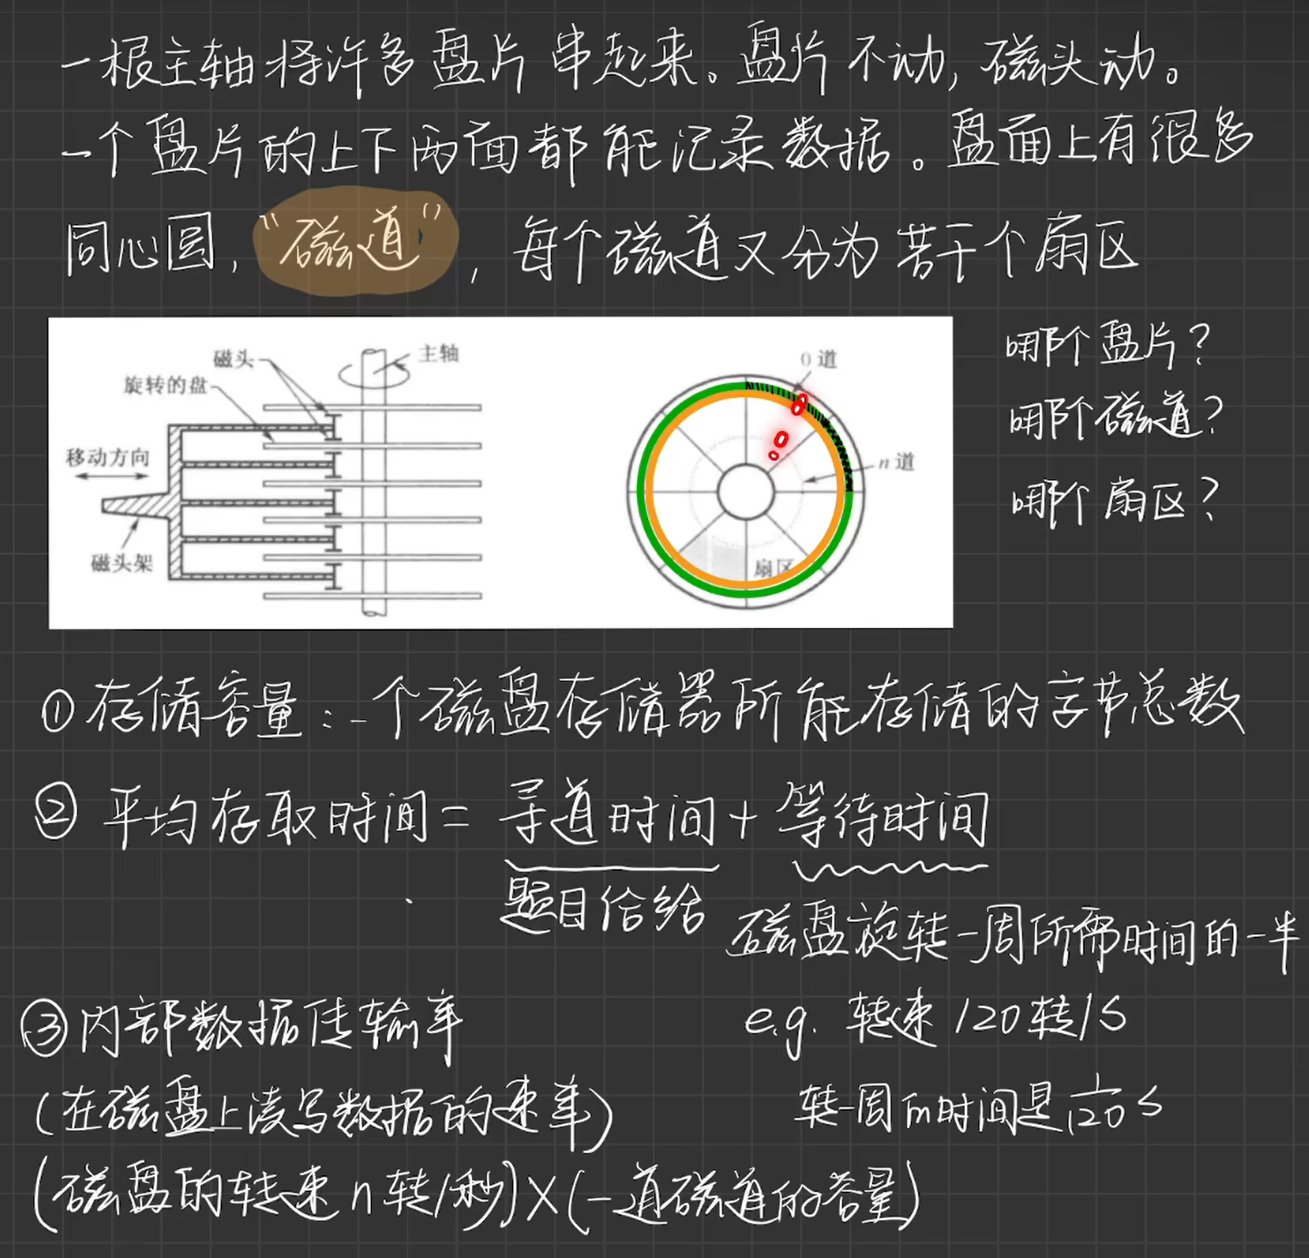 一根主轴将许多盘片串起来。盘片不动，磁头动。
一个盘片的上下两面都能记录数据。盘面上有很多
同心圆，“磁道”，每个磁道又分为若干个扇区
磁头
主轴
旋转的盘
移动方向
磁头架
0道
n道
扇区
哪个盘片？
哪个磁道？
哪个扇区？
①存储容量：一个磁盘存储器所能存储的字节总数
②平均存取时间＝寻道时间＋等待时间
题目给
磁盘旋转一周所需时间的一半
e.g. 转速120转/S
转一周的时间是1/120 S
③内部数据传输率
(在磁盘上读写数据的速率)
(磁盘的转速n转/秒)×(一道磁道的容量)